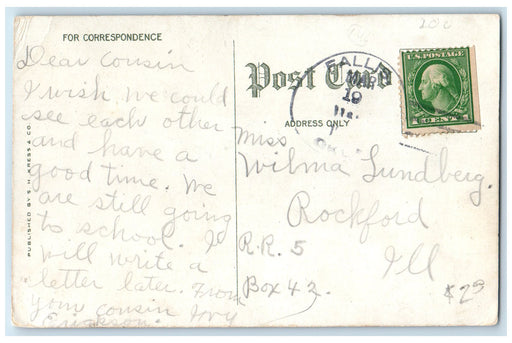 FOR CORRESPONDENCE
Dear Cousin
I wish we could
see each other
and have a
good time. We
are still going
to school. I
will write a
letter later. From
your cousin Ivy
Erickson.
PUBLISHED BY S. H. KRESS & CO.
Post Card
ADDRESS ONLY
FALLS
MAR
19
U.S. POSTAGE
CENT
Miss
Wilma Lundberg.
Rockford
R.R. 5
Ill
Box 42.